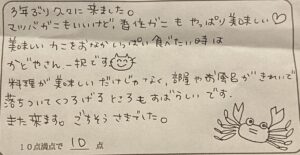 3年ぶり久々に来ました。
マツバがこもいいけど、香住がこもやっぱり美味しい♡
美味しいカニをおなかいっぱい食べたい時は
かどやさん一択です
料理が美味しいだけじゃなく、部屋やお風呂がきれいで
落ちついてくつろげるところもすばらしいです。
また来ます。ごちそうさまでした。
10点満点で 10 点